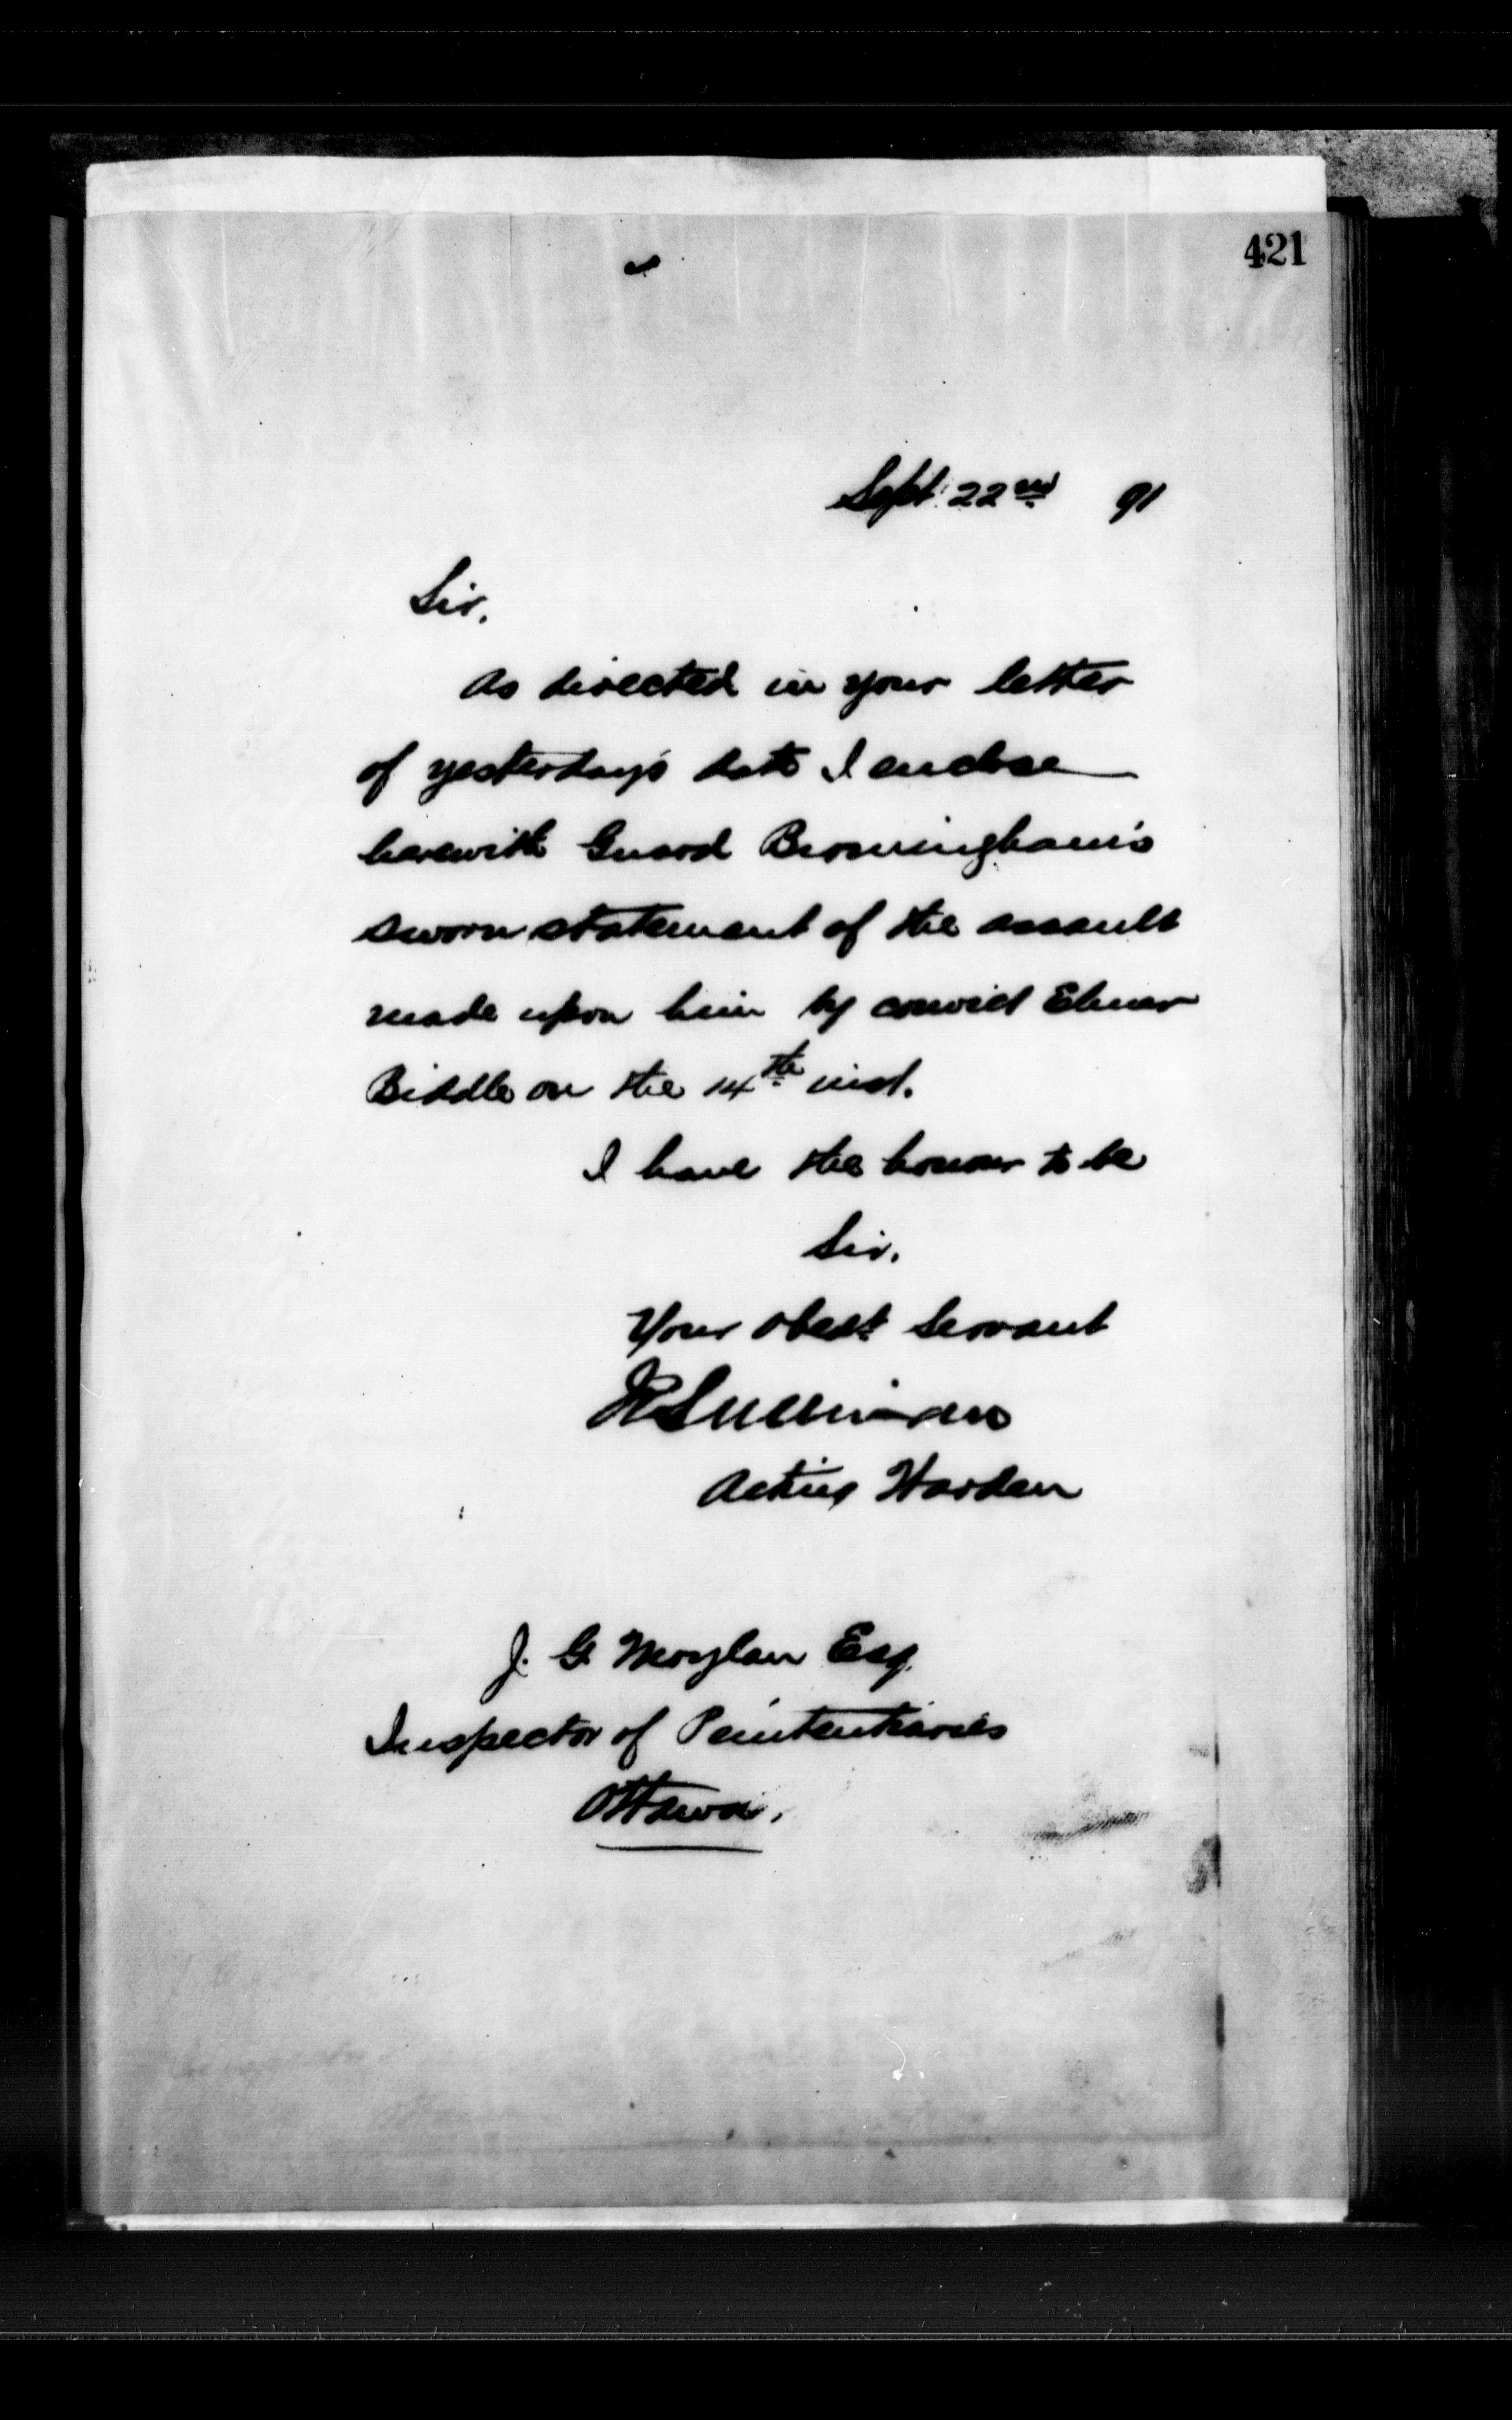 421
Sept. 22nd 91
Sir,
As directed in your letter
of yesterday's date I enclose
herewith Guard Bromingham's
sworn statement of the assault
made upon him by convict Elmer
Biddle on the 14th inst.
I have the honour to be
Sir,
Your obedt. Servant
Acting Warden
J. G. Moylan Esq.
Inspector of Penitentiaries
Ottawa.